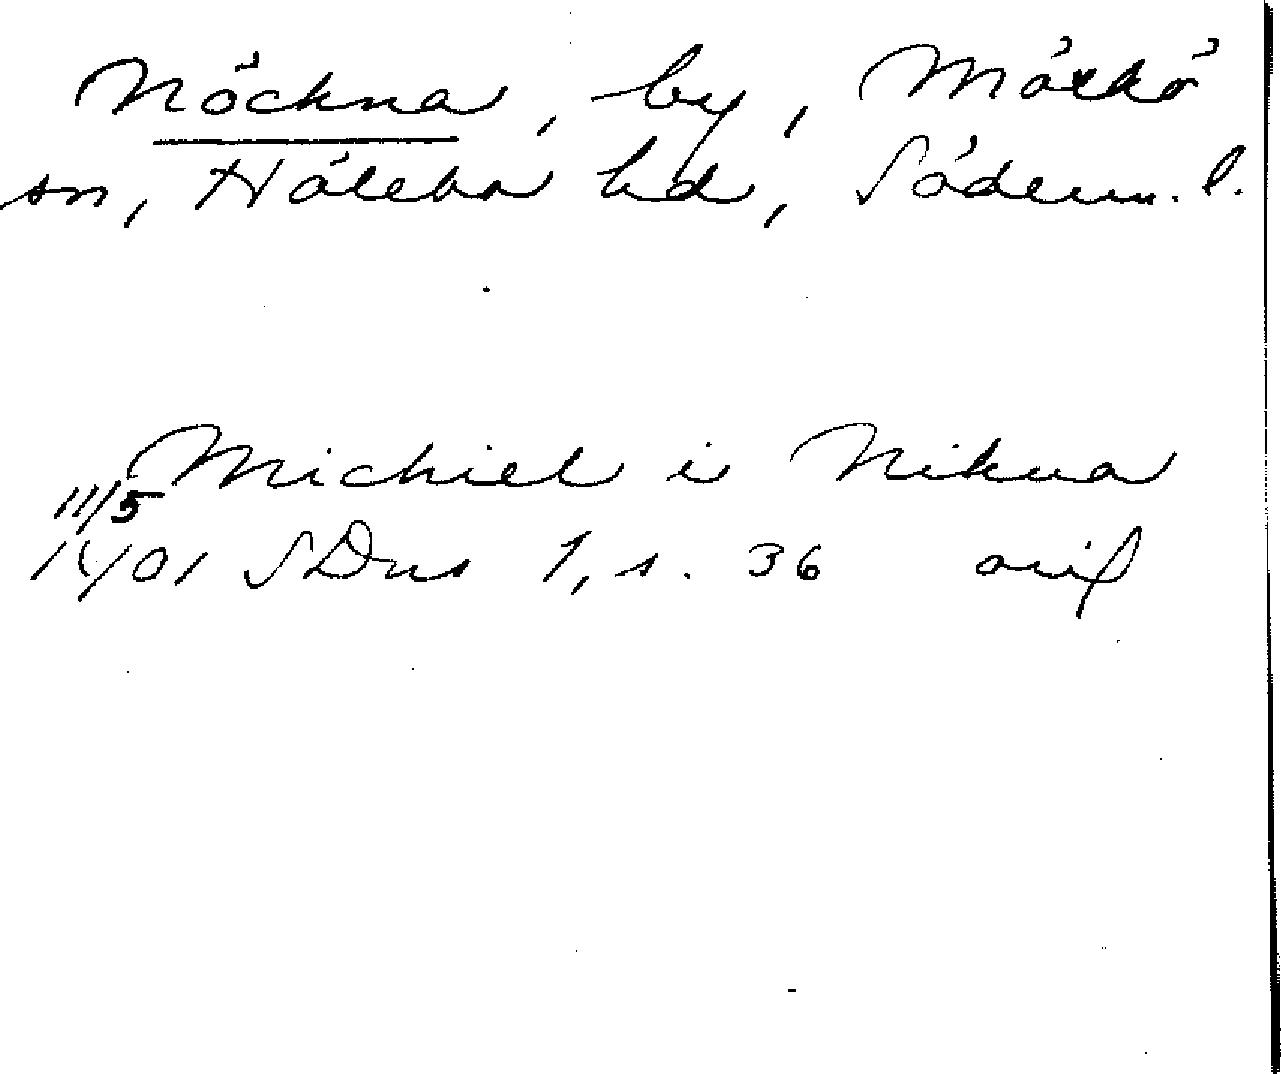 Nöckna, by, Mörkö
sn, Hölebo hd, Söderm. l.
Michiel i Nikna
11/5
1401 SDns 1, s. 36 orig